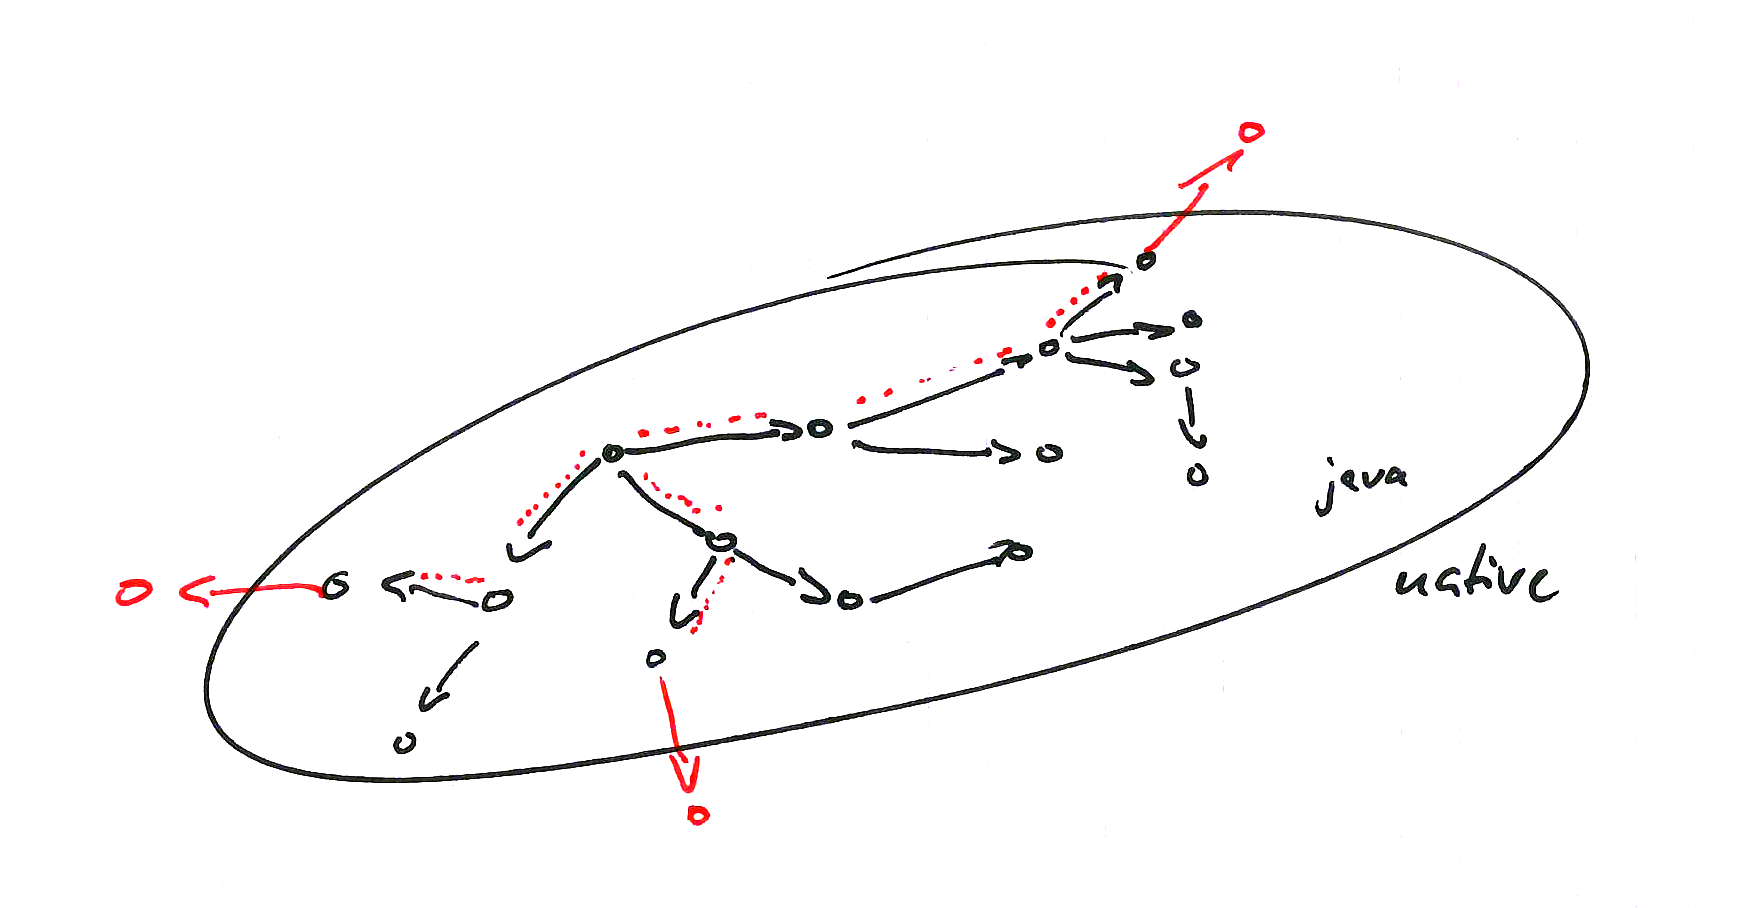 java
native